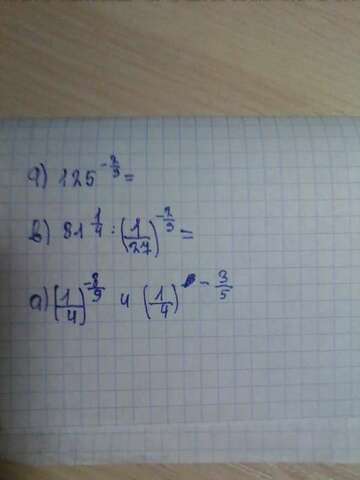 а) 125^{-\frac{2}{3}} =
в) 81^{\frac{1}{4}} : \left(\frac{1}{27}\right)^{-\frac{2}{3}} =
а) \left(\frac{1}{4}\right)^{-\frac{8}{9}} и \left(\frac{1}{4}\right)^{-\frac{3}{5}}